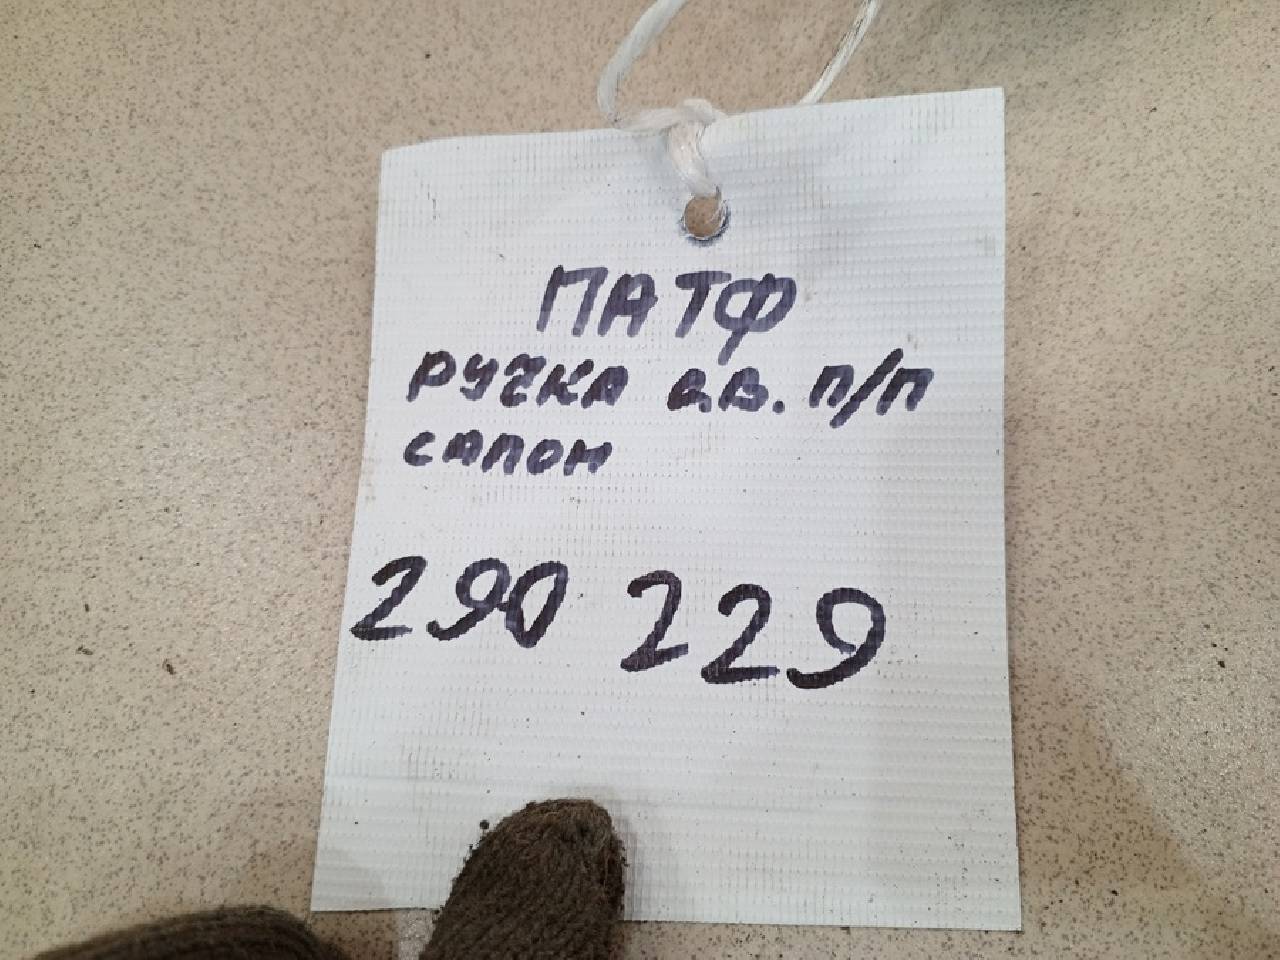 ПАТФ
РУЧКА дв. П/П
САЛОН
290 229